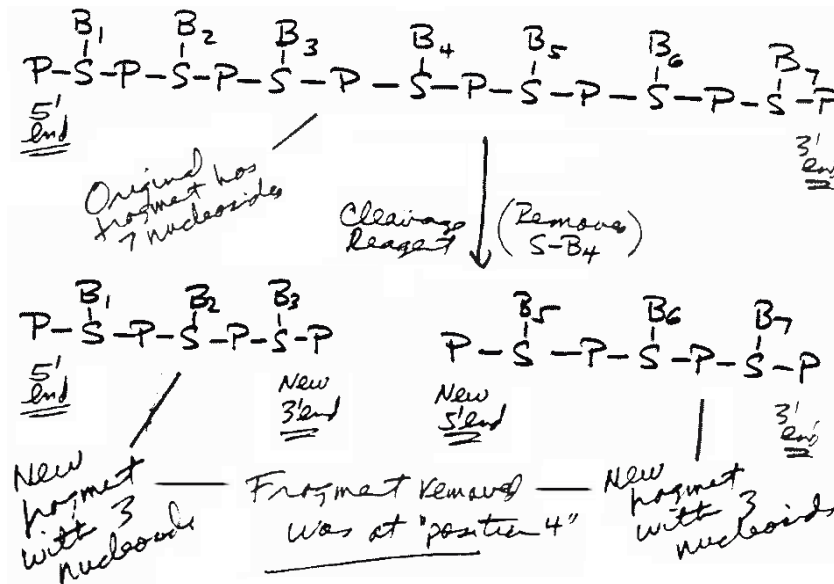 B1 B2 B3 B4 B5 B6 B7
P-S-P-S-P-S-P-S-P-S-P-S-P-S-P
5' end
3' end
Original fragment has 7 nucleosides
Cleavage Reagent
(Remove S-B4)
B1 B2 B3
P-S-P-S-P-S-P
5' end
New 3' end
B5 B6 B7
P-S-P-S-P-S-P
New 5' end
3' end
New fragment with 3 nucleosides
Fragment removed
was at "position 4"
New fragment with 3 nucleosids